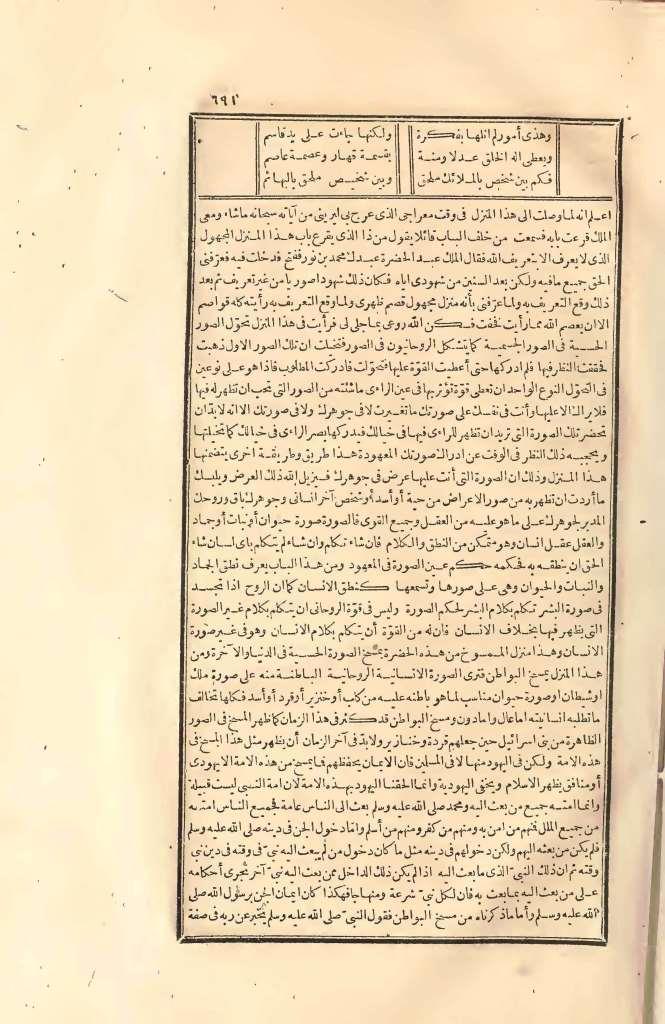 ٦٩١
وهذى أمور لم انلها بفكرة ولكنها جاءت على يد قاسم
ويعطى اله الخلق عدلا ومنة بقسمة قهار وعصمة عاصم
فكم بين شخص بالملائك ملحق وبين شخيص ملحق بالبهائم
اعلم انه لما وصلت الى هذا المنزل فى وقت معراجى الذى عرج بى ليرينى من آياته سبحانه ماشاء ومعى
الملك قرعت بابه فسمعت من خلف الباب قائلا يقول من ذا الذى يقرع باب هذا المنزل المجهول
الذى لا يعرف الا بتعريف الله فقال الملك عبد الحضرة عبدك محمد بن نور ففتح فدخلت فيه فعرّفنى
الحق جميع مافيه ولكن بعد السنين من شهودى اياه فكان ذلك شهودا صوريا من غير تعريف ثم بعد
ذلك وقع التعريف به ولما عرّفنى بأنه منزل مجهول قصم ظهرى ولما وقع التعريف به رأيته كله قواصم
الا ان يعصم الله ممارأيت فخفت فسكن الله روعى بما جلى لى فرأيت فى هذا المنزل تحوّل الصور
الحسية فى الصور الجسمية كما يتشكل الروحانيون فى الصور فتخيلت ان تلك الصور الاول ذهبت
فحققت النظر فيها فلم ادركها حتى أعطيت القوّة عليها فتحوّلت فادركت المطلوب فاذا هو على نوعين
فى التحوّل النوع الواحد ان تعطى قوّة تؤثر بها فى عين الراءى ماشئته من الصور التى تحب ان تظهر له فيها
فلا يراك الا عليها وأنت فى نفسك على صورتك ما تغيرت لا فى جوهرك ولا فى صورتك الا انه لابدّ ان
تحضر تلك الصورة التى تريد ان تظهر للراءى فيها فى خيالك فيدركها بصر الراءى فى خيالك كما تخيلتها
ويحجبه ذلك النظر فى الوقت عن ادراك صورتك المعهودة هذا طريق وطريقة اخرى يتضمنها
هذا المنزل وذلك ان الصورة التى أنت عليها عرض فى جوهرك فيزيل الله ذلك العرض ويلبسك
ما أردت ان تظهر به من صور الاعراض من حية أو أسد أو شخص آخر انسانى وجوهرك باق وروحك
المدبر لجوهرك على ما هو عليه من العقل وجميع القوى فالصورة صورة حيوان أو نبات أو جماد
والعقل عقل انسان وهو متمكن من النطق والكلام فان شاء تكلم وان شاء لم يتكلم باى لسان شاء
الحق ان ينطقه به فحكمه حكم عين الصورة فى المعهود ومن هذا الباب يعرف نطق الجماد
والنبات والحيوان وهى على صورها وتسمعها كنطق الانسان كما ان الروح اذا تجسد
فى صورة البشر تكلم بكلام البشر لحكم الصورة وليس فى قوّة الروحانى ان يتكلم بكلام غير الصورة
التى يظهر فيها بخلاف الانسان فان له من القوّة أن يتكلم بكلام الانسان وهو فى غير صورة
الانسان وهذا منزل الممسوخ من هذه الحضرة يمسخ الصورة الحسية فى الدنيا والآخرة ومن
هذا المنزل يمسخ البواطن فترى الصورة الانسانية الروحانية الباطنة منه على صورة ملك
او شيطان او صورة حيوان مناسب لما هو باطنه عليه من كلب أو خنزير أو قرد أو أسد فكلها تخالف
ما تطلبه انسانيته اما عال واما دون ومسخ البواطن قد كثر فى هذا الزمان كما ظهر المسخ فى الصور
الظاهرة من بنى اسرائيل حين جعلهم قردة وخنازير ولابدّ فى آخر الزمان أن يظهر مثل هذا المسخ فى
هذه الامة ولكن فى اليهود منها لا فى المسلمين فان الايمان يحفظهم فما يمسخ من هذه الامة الا يهودى
أو منافق يظهر الاسلام ويخفى اليهودية وانما الحقنا اليهود بهذه الامة لان امة النبى ليست قبيلة
وانما امته جميع من بعث اليه ومحمد صلى الله عليه وسلم بعث الى الناس عامة فجميع الناس امته
من جميع الملل فمنهم من امن به ومنهم من كفر ومنهم من أسلم وأما دخول الجن فى دينه صلى الله عليه وسلم
فلم يكن من بعثه اليهم ولكن دخولهم فى دينه مثل ما كان دخول من لم يبعث اليه نبىّ فى وقته فى دين نبى
وقته ثم ان ذلك النبىّ الذى ما بعث اليه اذا لم يكن ذلك الداخل ممن بعث اليه نبىّ آخر تجرى أحكامه
على من بعث اليه بما بعث به فان لكل نبىّ شرعة ومنهاجا فهكذا كان ايمان الجن برسول الله صلى
الله عليه وسلم وأما ماذكرناه من مسخ البواطن فقول النبىّ صلى الله عليه وسلم يخبر عن ربه فى صفة